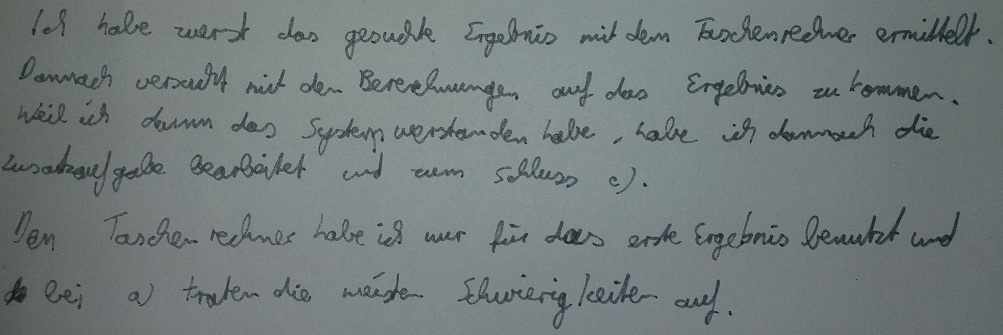 Ich habe zuerst das gesuchte Ergebnis mit dem Taschenrechner ermittelt.
Dannach versucht mit den Berechnungen auf das Ergebnis zu kommen.
Weil ich dann das System verstanden habe, habe ich dannach die
Zusatzaufgabe bearbeitet und zum Schluss c).
Den Taschenrechner habe ich nur für das erste Ergebnis benutzt und
bei a) traten die meisten Schwierigkeiten auf.